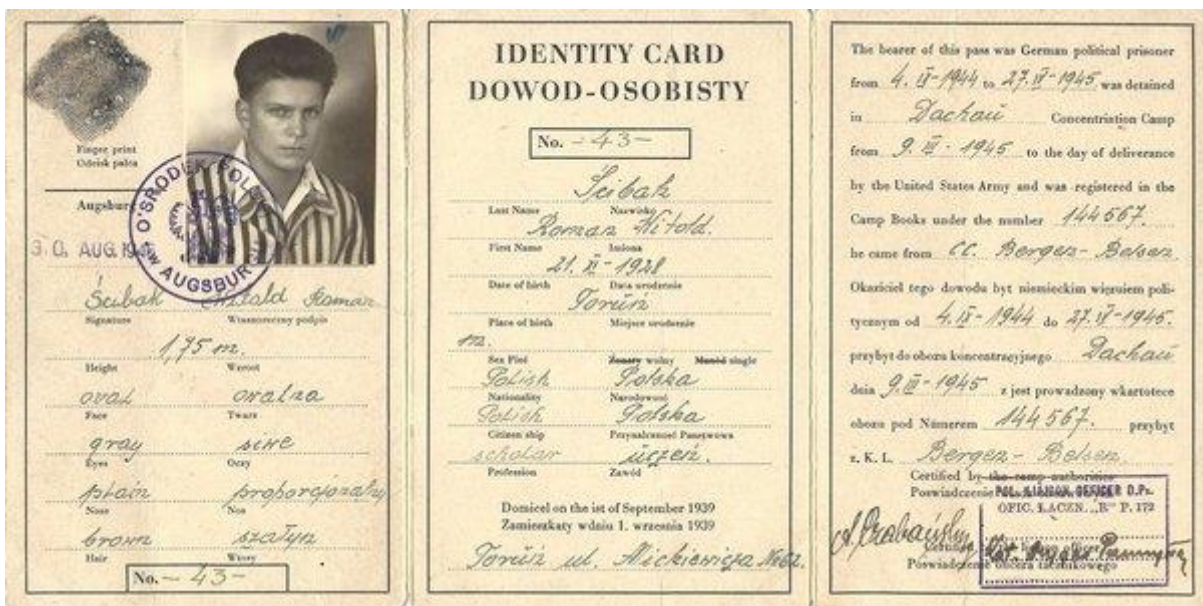 Finger print
Odcisk palca
Augsburg
30. AUG. 194
OŚRODEK POL
AUGSBUR
Ścibak Witold Roman
Signature Własnoręczny podpis
1,75 m.
Height Wzrost
oval owalna
Face Twarz
gray siwe
Eyes Oczy
plain proporcjonalny
Nose Nos
brown szatyn
Hair Włosy
No. - 43 -
IDENTITY CARD
DOWOD-OSOBISTY
No. - 43 -
Ścibak
Last Name Nazwisko
Roman Witold.
First Name Imiona
21. XI - 1928
Date of birth Data urodzenie
Toruń
Place of birth Miejsce urodzenie
m.
Sex Płeć Żonaty wolny Married single
Polish Polska
Nationality Narodowość
Polish Polska
Citizen ship Przynależność Państwowa
scholar uczeń.
Profession Zawód
Domicel on the ist of September 1939
Zamieszkaty wdniu 1. wrzesnia 1939
Toruń ul. Mickiewicza No 62.
The bearer of this pass was German political prisoner
from 4. IX - 1944 to 27. IV - 1945 was detained
in Dachau Concentristion Camp
from 9. III - 1945 to the day of deliverance
by the United States Army and was registered in the
Camp Books under the number 144567.
he came from CC. Bergen - Belsen
Okaziciel tego dowodu byt niemieckim więzniem poli-
tycznym od 4. IX - 1944 do 27. IV - 1945.
przybyt do obozu koncentracyjnego Dachau
dnia 9. III - 1945 z jest prowadzony wkartotece
obozu pod Numerem 144567. przybyt
z. K. L. Bergen - Belsen
Certified by the camp authorities
Poswiadczenie
POL. LIAISON OFFICER D.Ps.
OFIC. ŁACZN. „R" P. 172
Certified
Poswiadczenie oficera łacznikowego